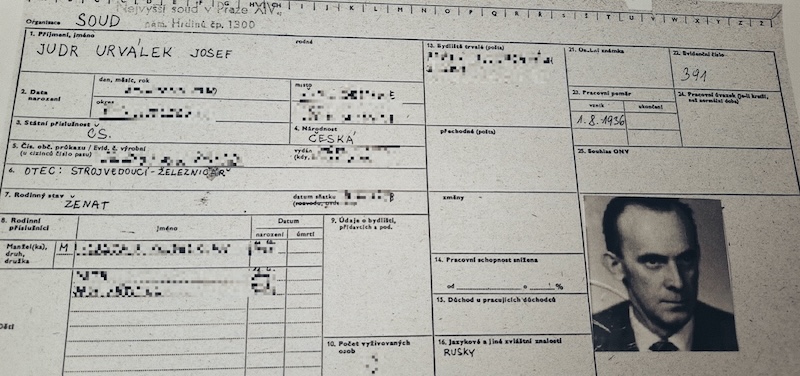 A B C Č D E F G H CH I J K L M N O P Q R Ř S Š T U V W X Y Z Ž
Nejvyšší soud v Praze XIV.
Organizace SOUD
nám. Hrdinů čp. 1300
1. Příjmení, jméno
rodné
JUDR URVÁLEK JOSEF
2. Datum narození
den, měsíc, rok
místo
okres
3. Státní příslušnost
ČS.
4. Národnost
ČESKÁ
5. Čís. obč. průkazu / Evid. č. výrobní
(u cizinců číslo pasu)
vydán
(kdy,
6. OTEC: STROJVEDOUCÍ-ŽELEZNIČÁŘ
7. Rodinný stav
ŽENAT
datum sňatku
8. Rodinní příslušníci
jméno
Datum
narození
úmrtí
Manžel(ka),
druh,
družka
M
9. Údaje o bydlišti,
přídavcích a pod.
10. Počet vyživovaných
osob
13. Bydliště trvalé (pošta)
přechodné (pošta)
změny
14. Pracovní schopnost snížena
od
o
%
15. Důchod u pracujících důchodců
16. Jazykové a jiné zvláštní znalosti
RUSKY
21. Osobní známka
22. Evidenční číslo
391
23. Pracovní poměr
vznik
ukončení
1.8.1936
24. Pracovní úvazek (je-li kratší,
než normální doba)
25. Souhlas ONV